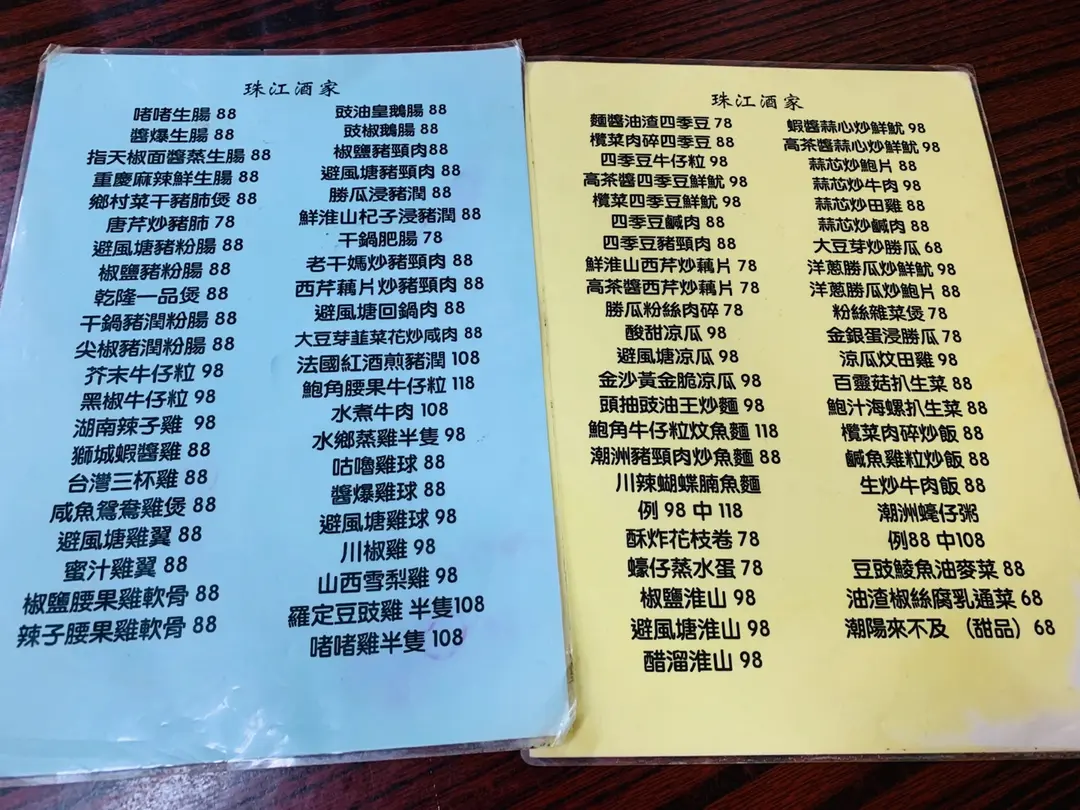 珠江酒家
啫啫生腸 88
醬爆生腸 88
指天椒面醬蒸生腸 88
重慶麻辣鮮生腸 88
鄉村菜干豬肺煲 88
唐芹炒豬肺 78
避風塘豬粉腸 88
椒鹽豬粉腸 88
乾隆一品煲 88
干鍋豬潤粉腸 88
尖椒豬潤粉腸 88
芥末牛仔粒 98
黑椒牛仔粒 98
湖南辣子雞 98
獅城蝦醬雞 88
台灣三杯雞 88
咸魚鴛鴦雞煲 88
避風塘雞翼 88
蜜汁雞翼 88
椒鹽腰果雞軟骨 88
辣子腰果雞軟骨 88
豉油皇鵝腸 88
豉椒鵝腸 88
椒鹽豬頸肉88
避風塘豬頸肉 88
勝瓜浸豬潤 88
鮮淮山杞子浸豬潤 88
干鍋肥腸 78
老干媽炒豬頸肉 88
西芹藕片炒豬頸肉 88
避風塘回鍋肉 88
大豆芽韮菜花炒咸肉 88
法國紅酒煎豬潤 108
鮑角腰果牛仔粒 118
水煮牛肉 108
水鄉蒸雞半隻 98
咕嚕雞球 88
醬爆雞球 88
避風塘雞球 98
川椒雞 98
山西雪梨雞 98
羅定豆豉雞 半隻108
啫啫雞半隻 108
珠江酒家
麵醬油渣四季豆 78
欖菜肉碎四季豆 88
四季豆牛仔粒 98
高茶醬四季豆鮮魷 98
欖菜四季豆鮮魷 98
四季豆鹹肉 88
四季豆豬頸肉 88
鮮淮山西芹炒藕片 78
高茶醬西芹炒藕片 78
勝瓜粉絲肉碎 78
酸甜凉瓜 98
避風塘凉瓜 98
金沙黃金脆凉瓜 98
頭抽豉油王炒麵 98
鮑角牛仔粒炆魚麵 118
潮洲豬頸肉炒魚麵 88
川辣蝴蝶腩魚麵
例 98 中 118
酥炸花枝卷 78
蠔仔蒸水蛋 78
椒鹽淮山 98
避風塘淮山 98
醋溜淮山 98
蝦醬蒜心炒鮮魷 98
高茶醬蒜心炒鮮魷 98
蒜芯炒鮑片 88
蒜芯炒牛肉 98
蒜芯炒田雞 88
蒜芯炒鹹肉 88
大豆芽炒勝瓜 68
洋蔥勝瓜炒鮮魷 98
洋蔥勝瓜炒鮑片 88
粉絲雜菜煲 78
金銀蛋浸勝瓜 78
涼瓜炆田雞 98
百靈菇扒生菜 88
鮑汁海螺扒生菜 88
欖菜肉碎炒飯 88
鹹魚雞粒炒飯 88
生炒牛肉飯 88
潮洲蠔仔粥
例88 中108
豆豉鯪魚油麥菜 88
油渣椒絲腐乳通菜 68
潮陽來不及 （甜品）68